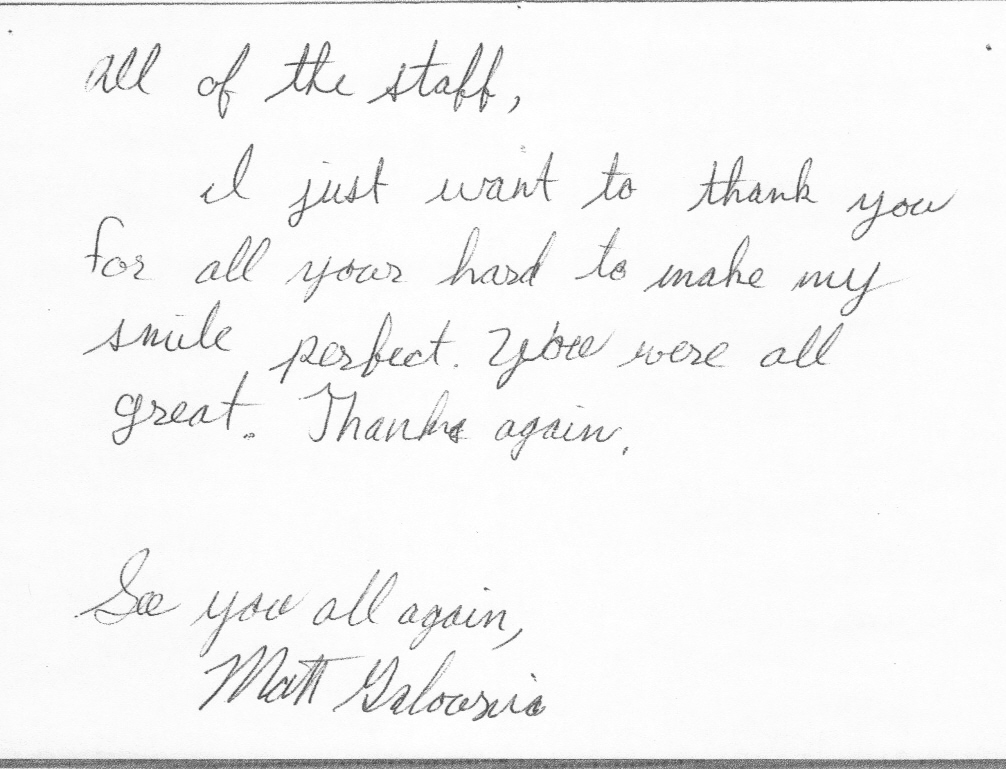 All of the staff,
I just want to thank you
for all your hard to make my
smile perfect. You were all
great. Thanks again.
See you all again,
Matt